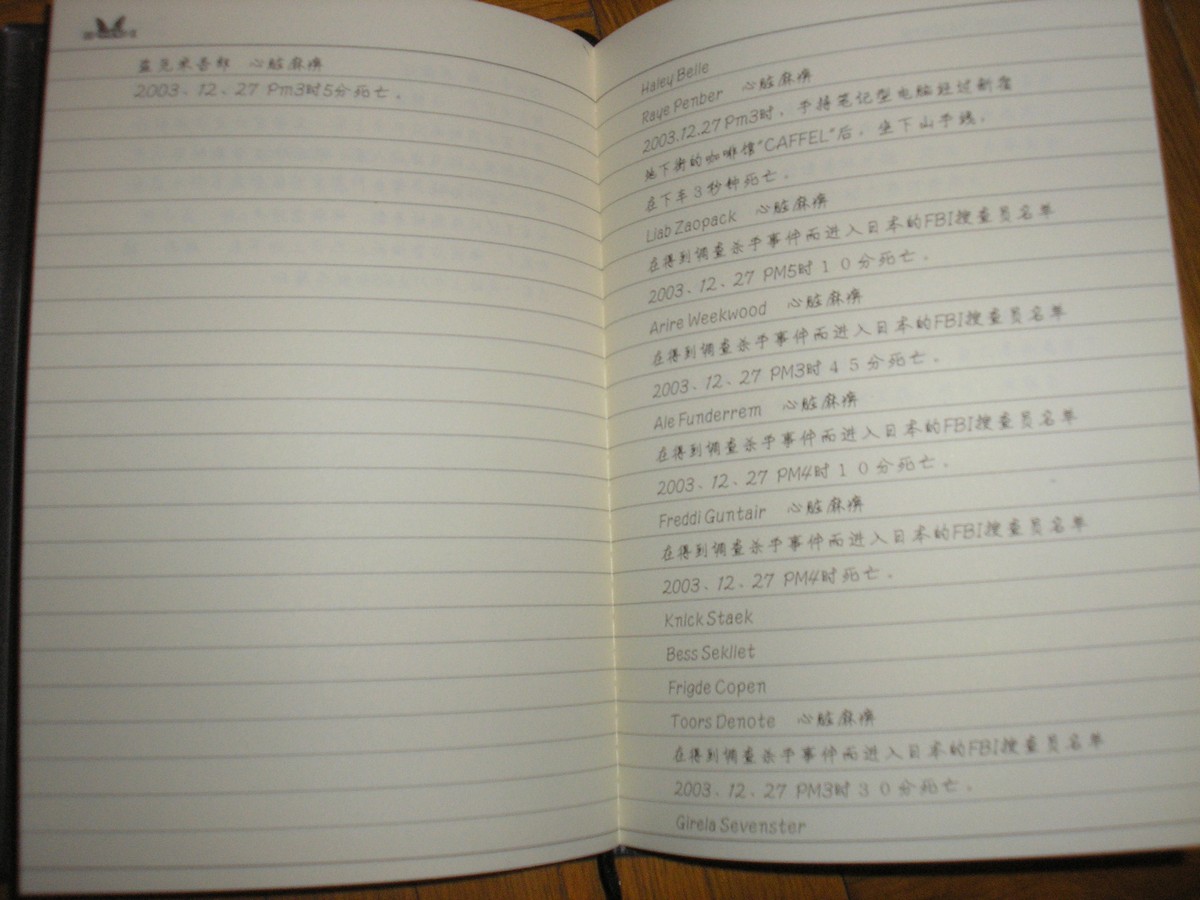 心脏麻痹
2003、12、27 Pm3时5分死亡。
Haley Belle
Raye Penber 心脏麻痹
2003.12.27 Pm3时，手持笔记型电脑经过新宿
地下街的咖啡馆"CAFFEL"后，坐下山手线，
在下车3秒钟死亡。
Liab Zaopack 心脏麻痹
在得到调查杀手事件而进入日本的FBI搜查员名单
2003、12、27 PM5时10分死亡。
Arire Weekwood 心脏麻痹
在得到调查杀手事件而进入日本的FBI搜查员名单
2003、12、27 PM3时45分死亡。
Ale Funderrem 心脏麻痹
在得到调查杀手事件而进入日本的FBI搜查员名单
2003、12、27 PM4时10分死亡。
Freddi Guntair 心脏麻痹
在得到调查杀手事件而进入日本的FBI搜查员名单
2003、12、27 PM4时死亡。
Knick Staek
Bess Sekllet
Frigde Copen
Toors Denote 心脏麻痹
在得到调查杀手事件而进入日本的FBI搜查员名单
2003、12、27 PM3时30分死亡。
Girela Sevenster